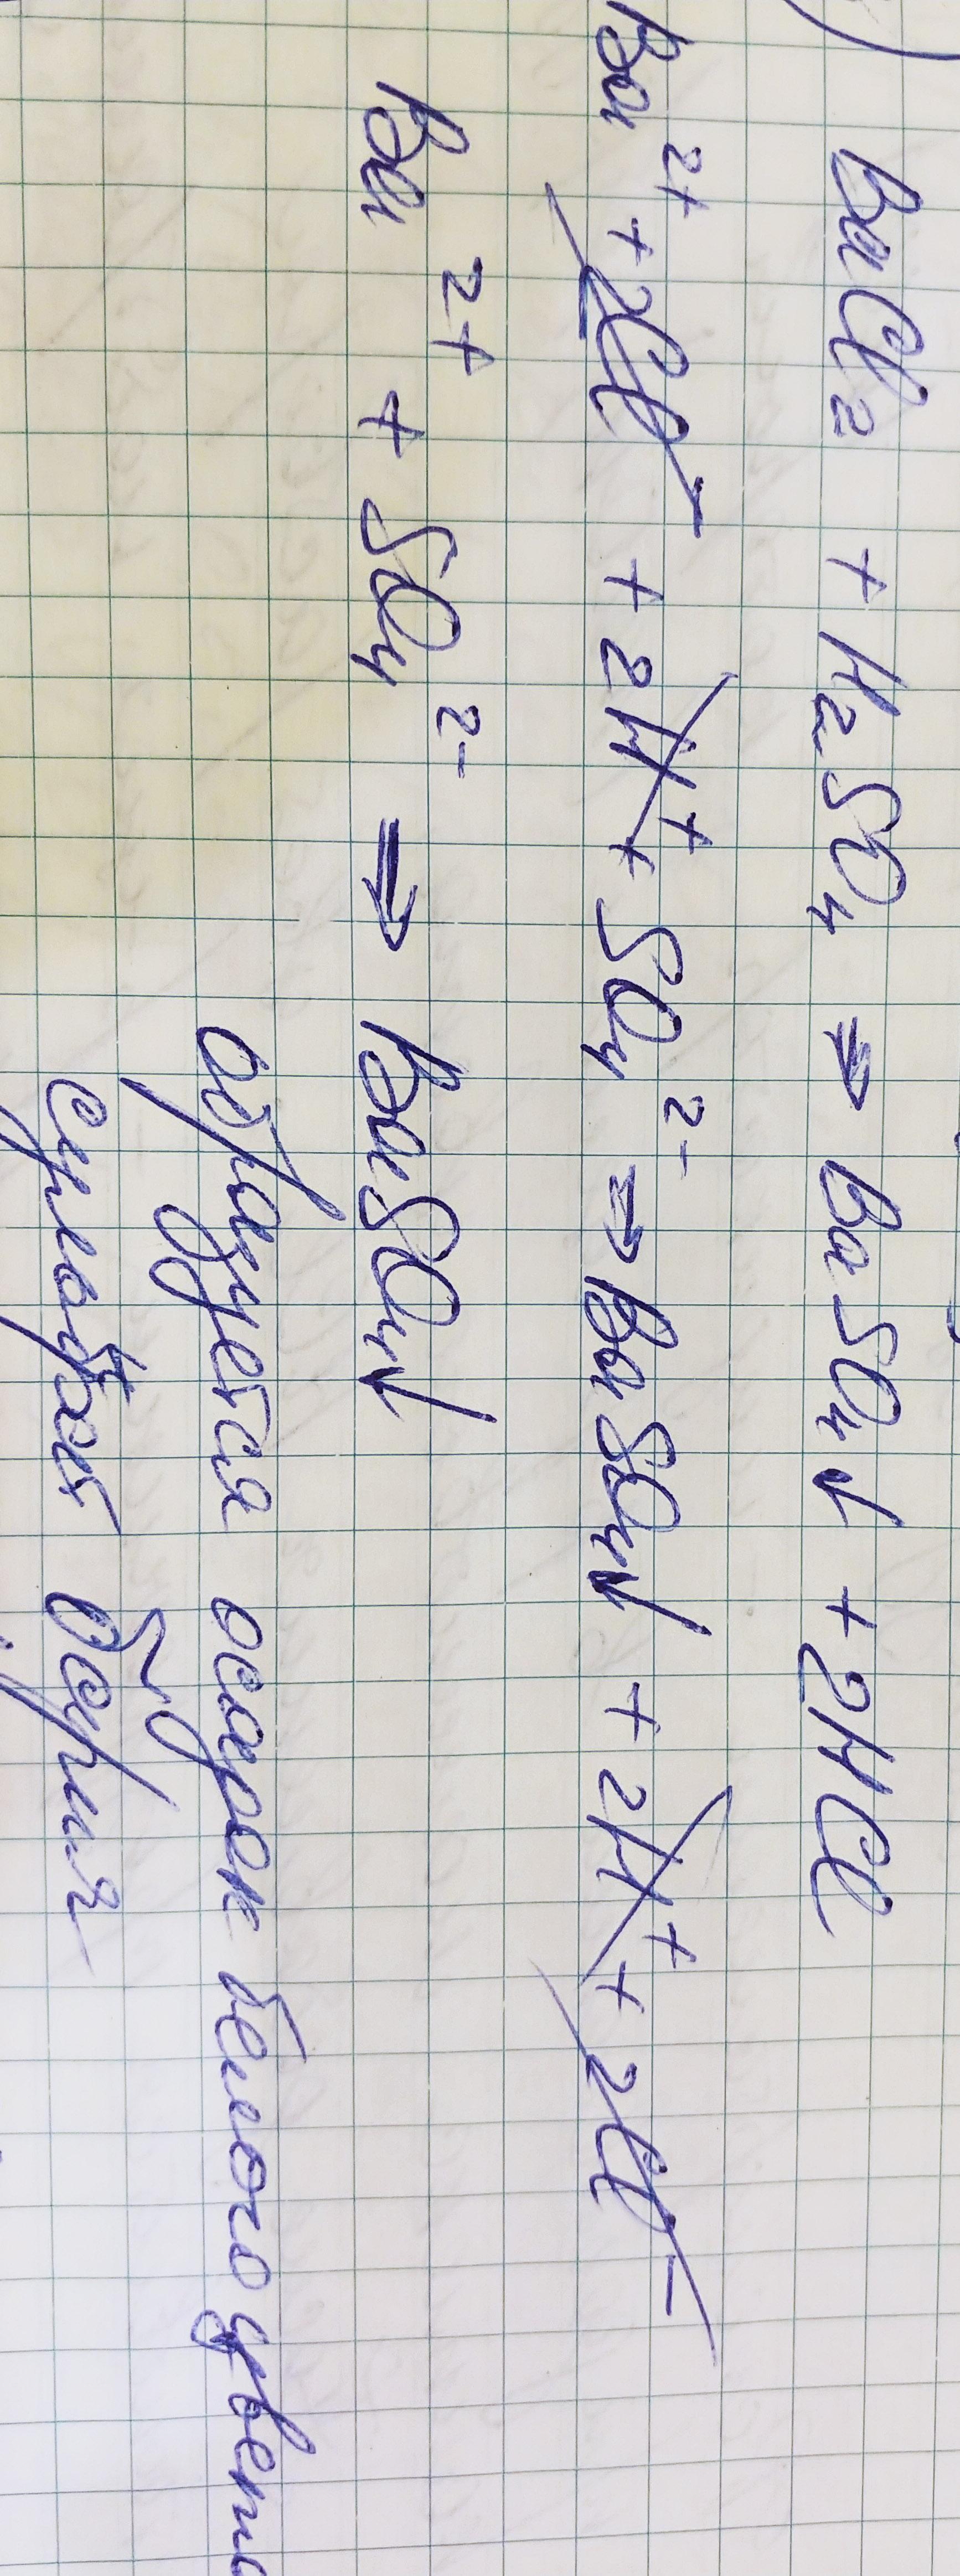 BaCl₂ + H₂SO₄ ⇒ BaSO₄↓ + 2HCl
Ba²⁺ + 2Cl⁻ + 2H⁺ + SO₄²⁻ ⇒ BaSO₄↓ + 2H⁺ + 2Cl⁻
Ba²⁺ + SO₄²⁻ ⇒ BaSO₄↓
образуется осадок белого цвета
сульфат бария